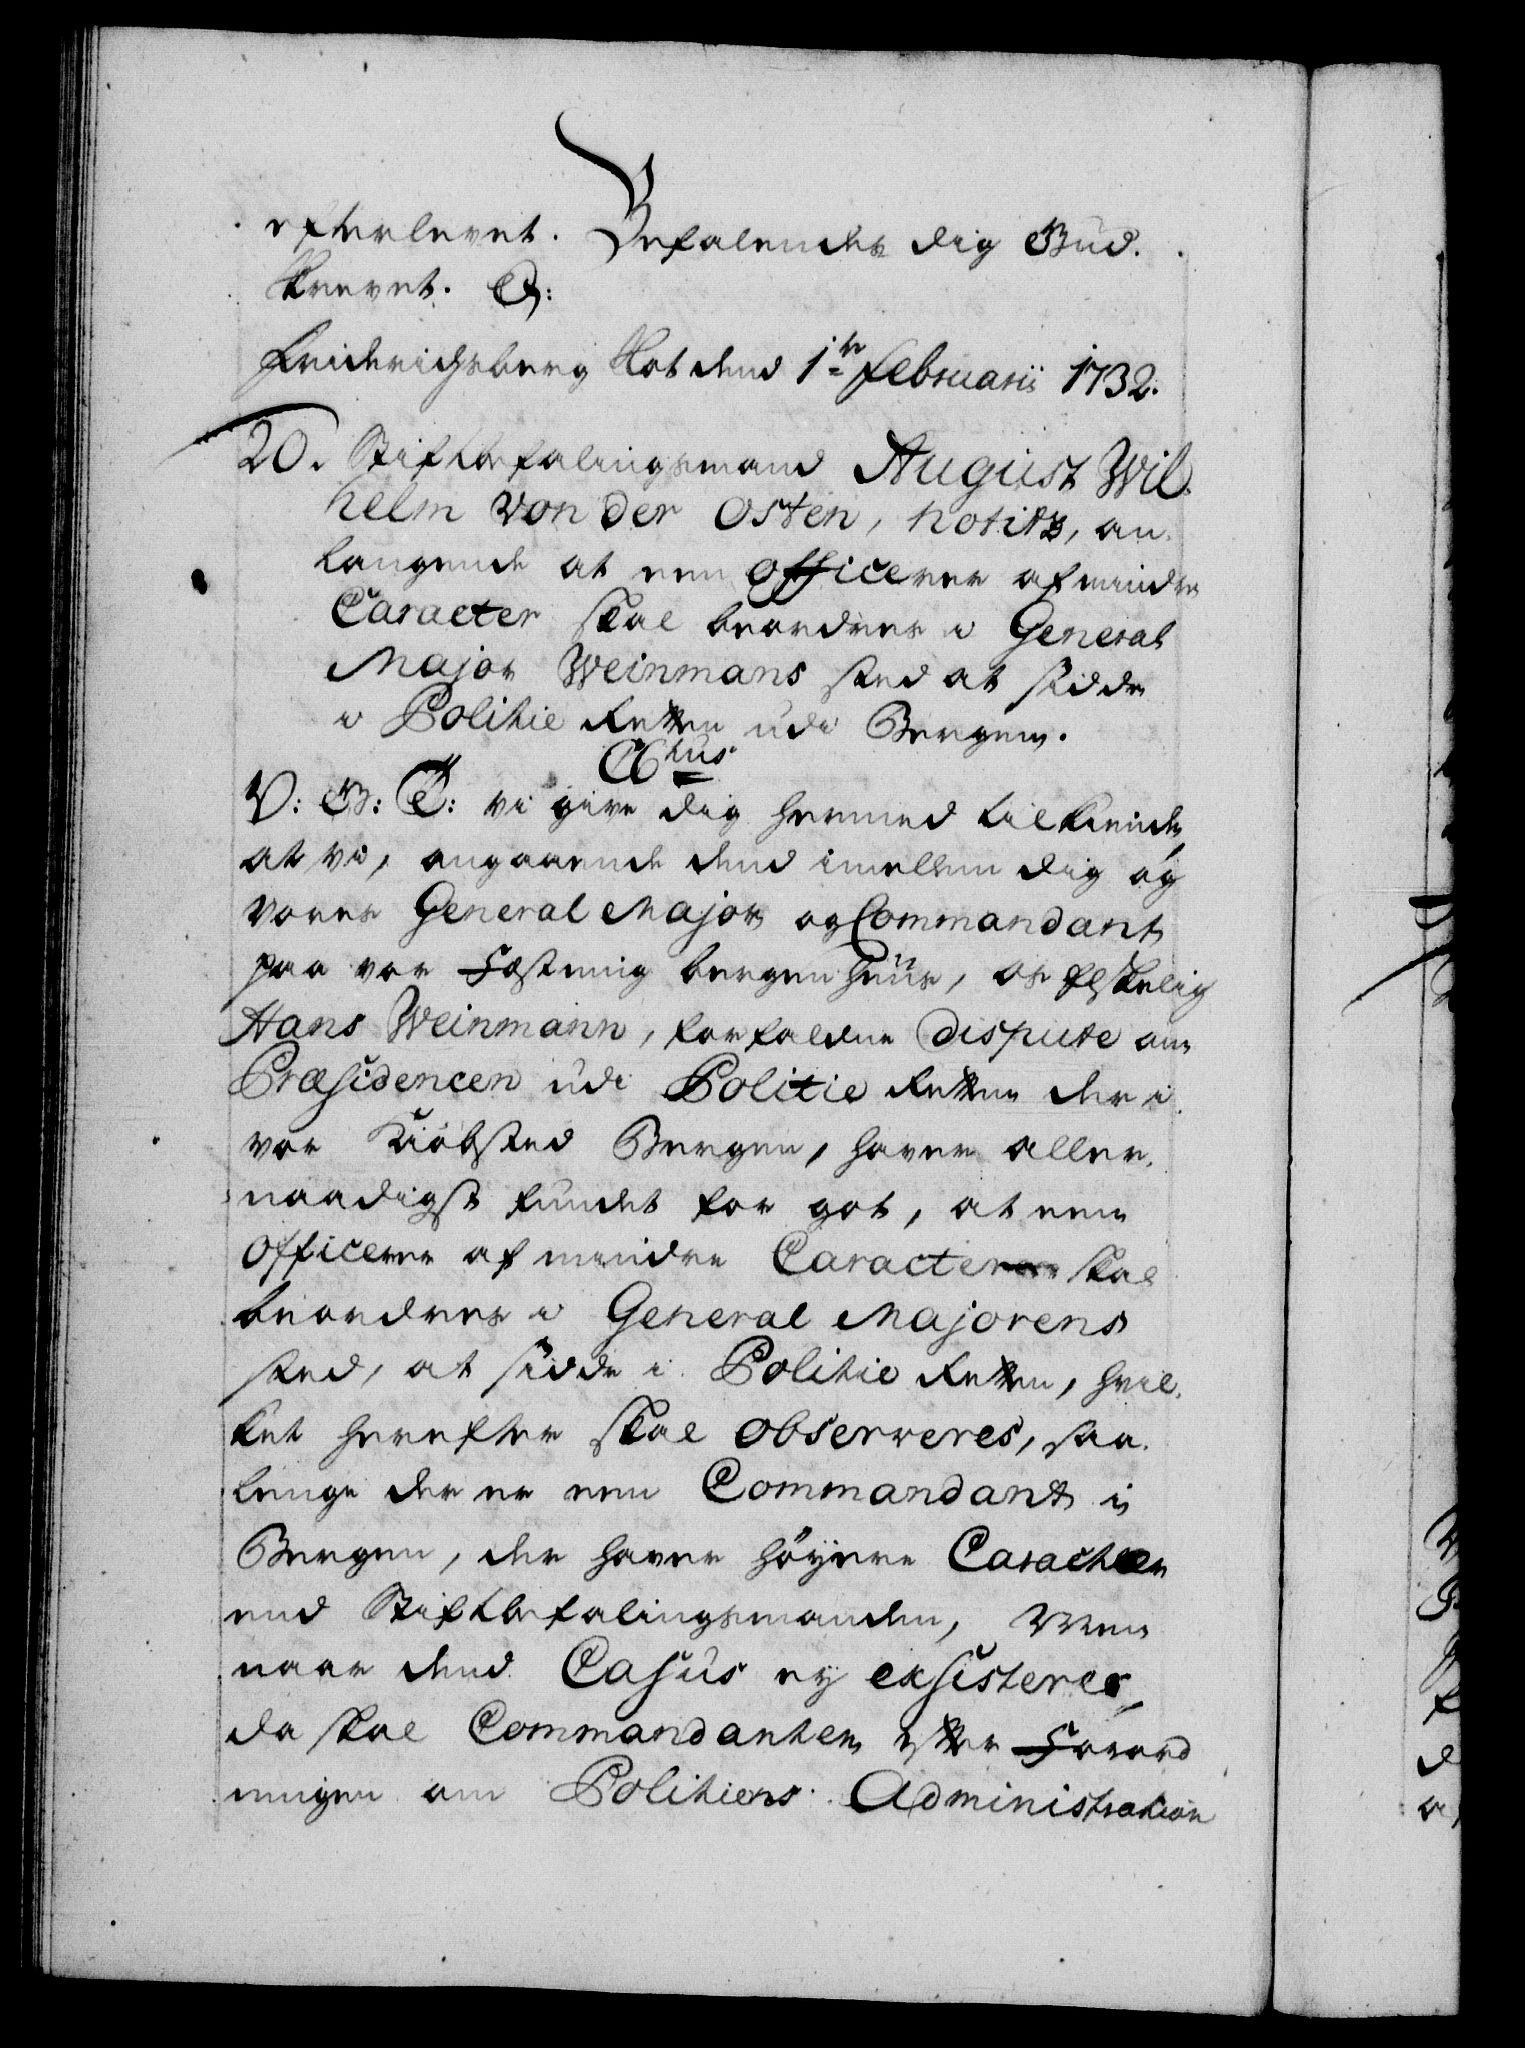 efterlevet. Befalendes dig Gud.
Skrevet. &:
Friderichsberg Slot dend 1te Februarii 1732.
20. Stiftbefalingsmand August Wil-
helm von der Osten, notitz, an-
langende at een Officerer af mindre
Caracter skal beordres i General
Major Weinmans sted at sidde
i Politie Retten udi Bergen.
Chus
V: G: T: vi give dig hermed tilkiende,
at vi, angaaende dend imellem dig og
vores General Major og Commandant
paa vor Fæstning bergenhuus, os Elskelig
Hans Weinmann, forfaldne Dispute om
Præsidencen udi Politie Retten der i
vor Kiøbsted Bergen, haver aller-
naadigst fundet for got, at een
Officerer af mindre Caracter skal
beordres i General Majorens
sted, at sidde i Politie Retten, hvil-
ket herefter skal observeres, saa-
lenge der er een Commandant i
Bergen, der haver höyere Caracter
end Stiftbefalingsmanden, Men
naar dend Casus ey exsisterer,
da skal Commandanten efter Forord
ningen om Politiens Administration